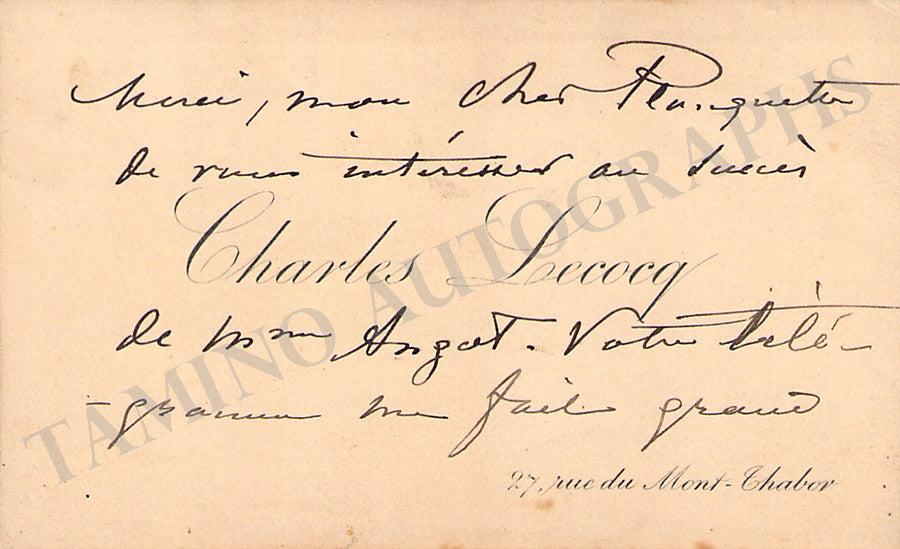 Merci, mon cher Planquette
de vous intéresser au succès
Charles Lecocq
de Mme Angot. Votre télé-
-gramme me fait grand
27, rue du Mont-Thabor
TAMINO AUTOGRAPHS